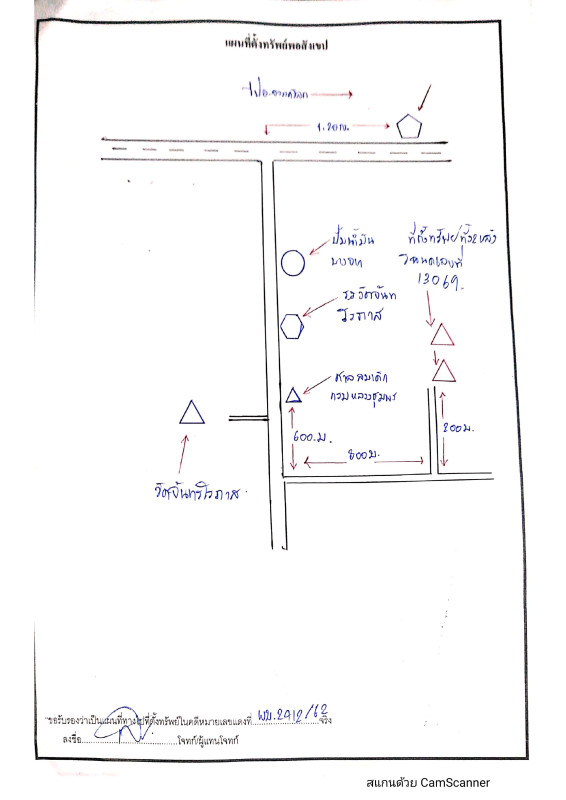 แผนที่ตั้งทรัพย์พอสังเขป
ไป อ.
1.20 ม.
ปั้มน้ำมัน
บางจาก
ที่ตั้งทรัพย์ทั้ง 2 หลัง
โฉนดเลขที่
13069.
รร วัดจันท
โรภาส
ศาลสมเด็จ
กรมหลวงชุมพร
600.ม.
800 ม.
200 ม.
วัดจันทร์โรภาส
"ขอรับรองว่าเป็นแผนที่ทางไปที่ตั้งทรัพย์ในคดีหมายเลขแดงที่ ผบ.2912/62 จริง
ลงชื่อ..............................โจทก์/ผู้แทนโจทก์
สแกนด้วย CamScanner